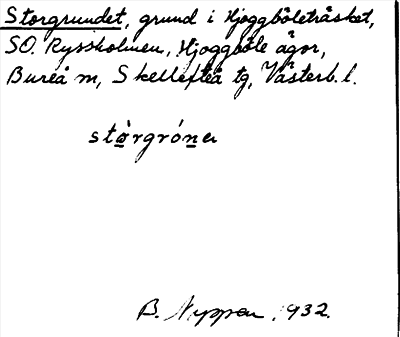 Storgrundet, grund i Hjoggböleträsket,
SO. Rysskolmen, Hjoggböle ägor,
Bureå m, Skellefteå tg, Västerb. l.
stòrgróna
B. Nyppen 1932.